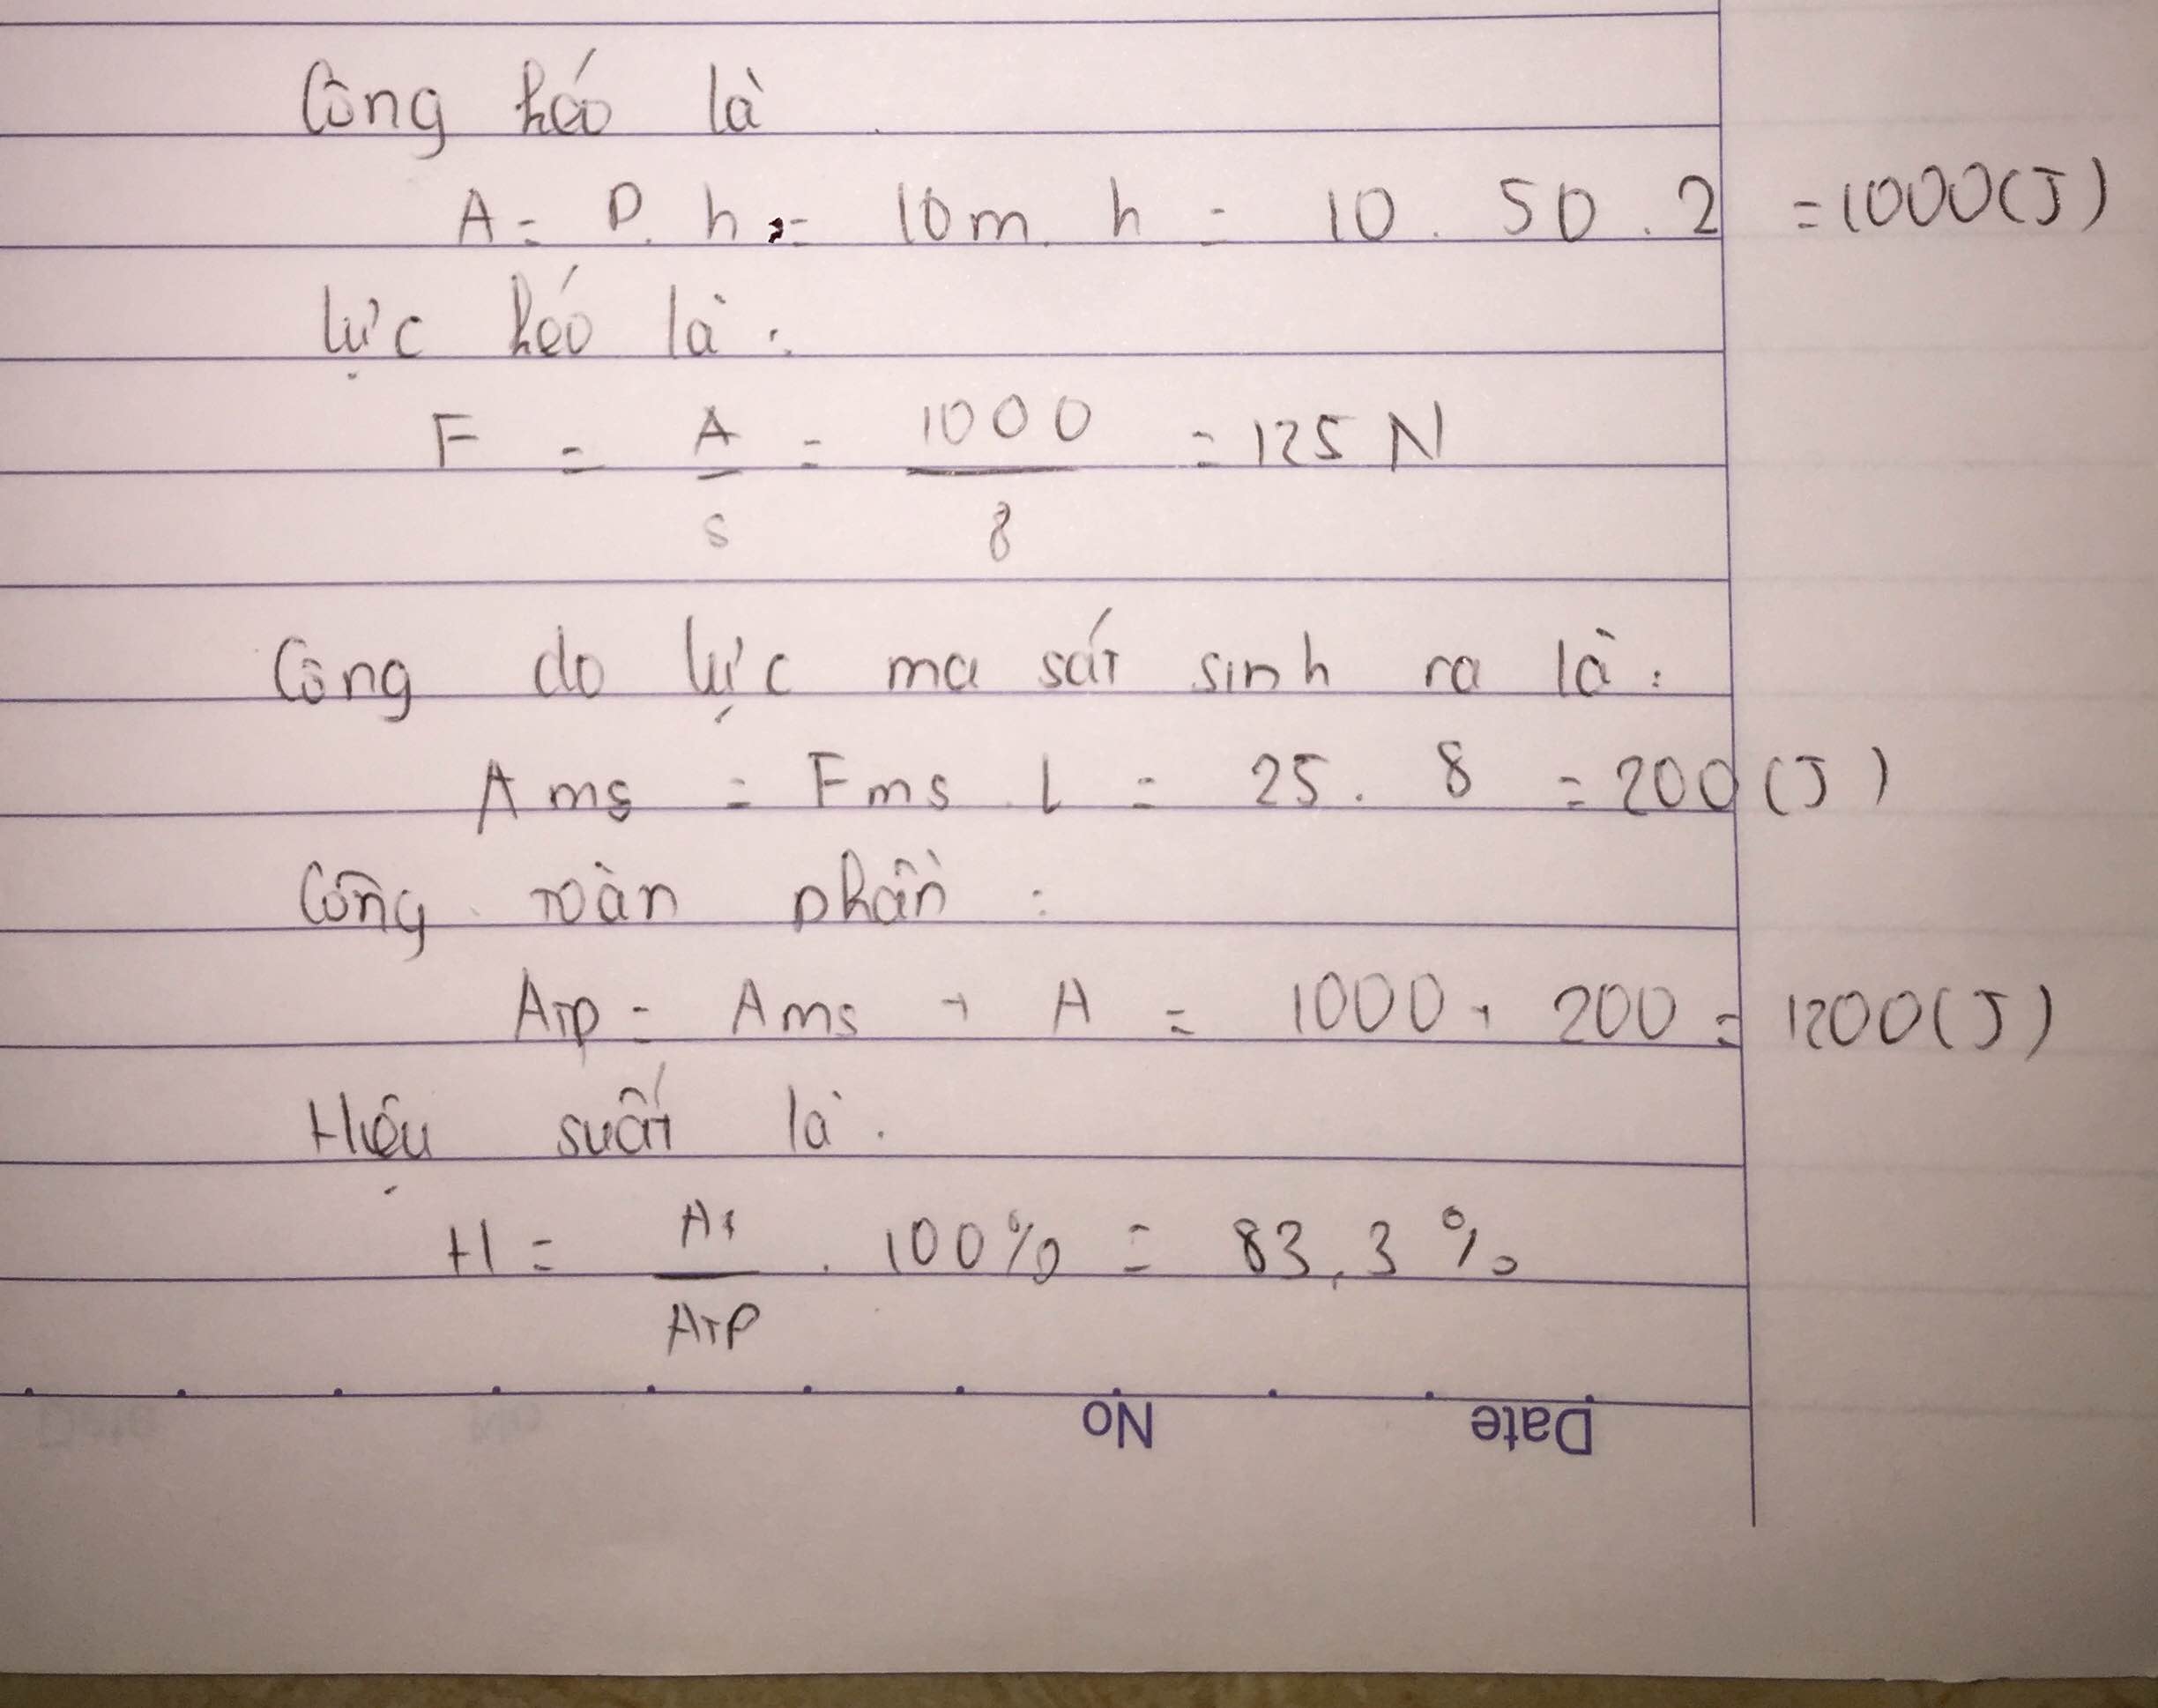 Công kéo là
A = P. h = 10m. h = 10 . 50 . 2 = 1000(J)
lực kéo là :
F = A/s = 1000/8 = 125 N
Công do lực ma sát sinh ra là :
Ams = Fms . l = 25 . 8 = 200(J)
Công toàn phần :
ATP = Ams + A = 1000 + 200 = 1200(J)
Hiệu suất là .
H = A1/ATP . 100% = 83,3 %
No Date